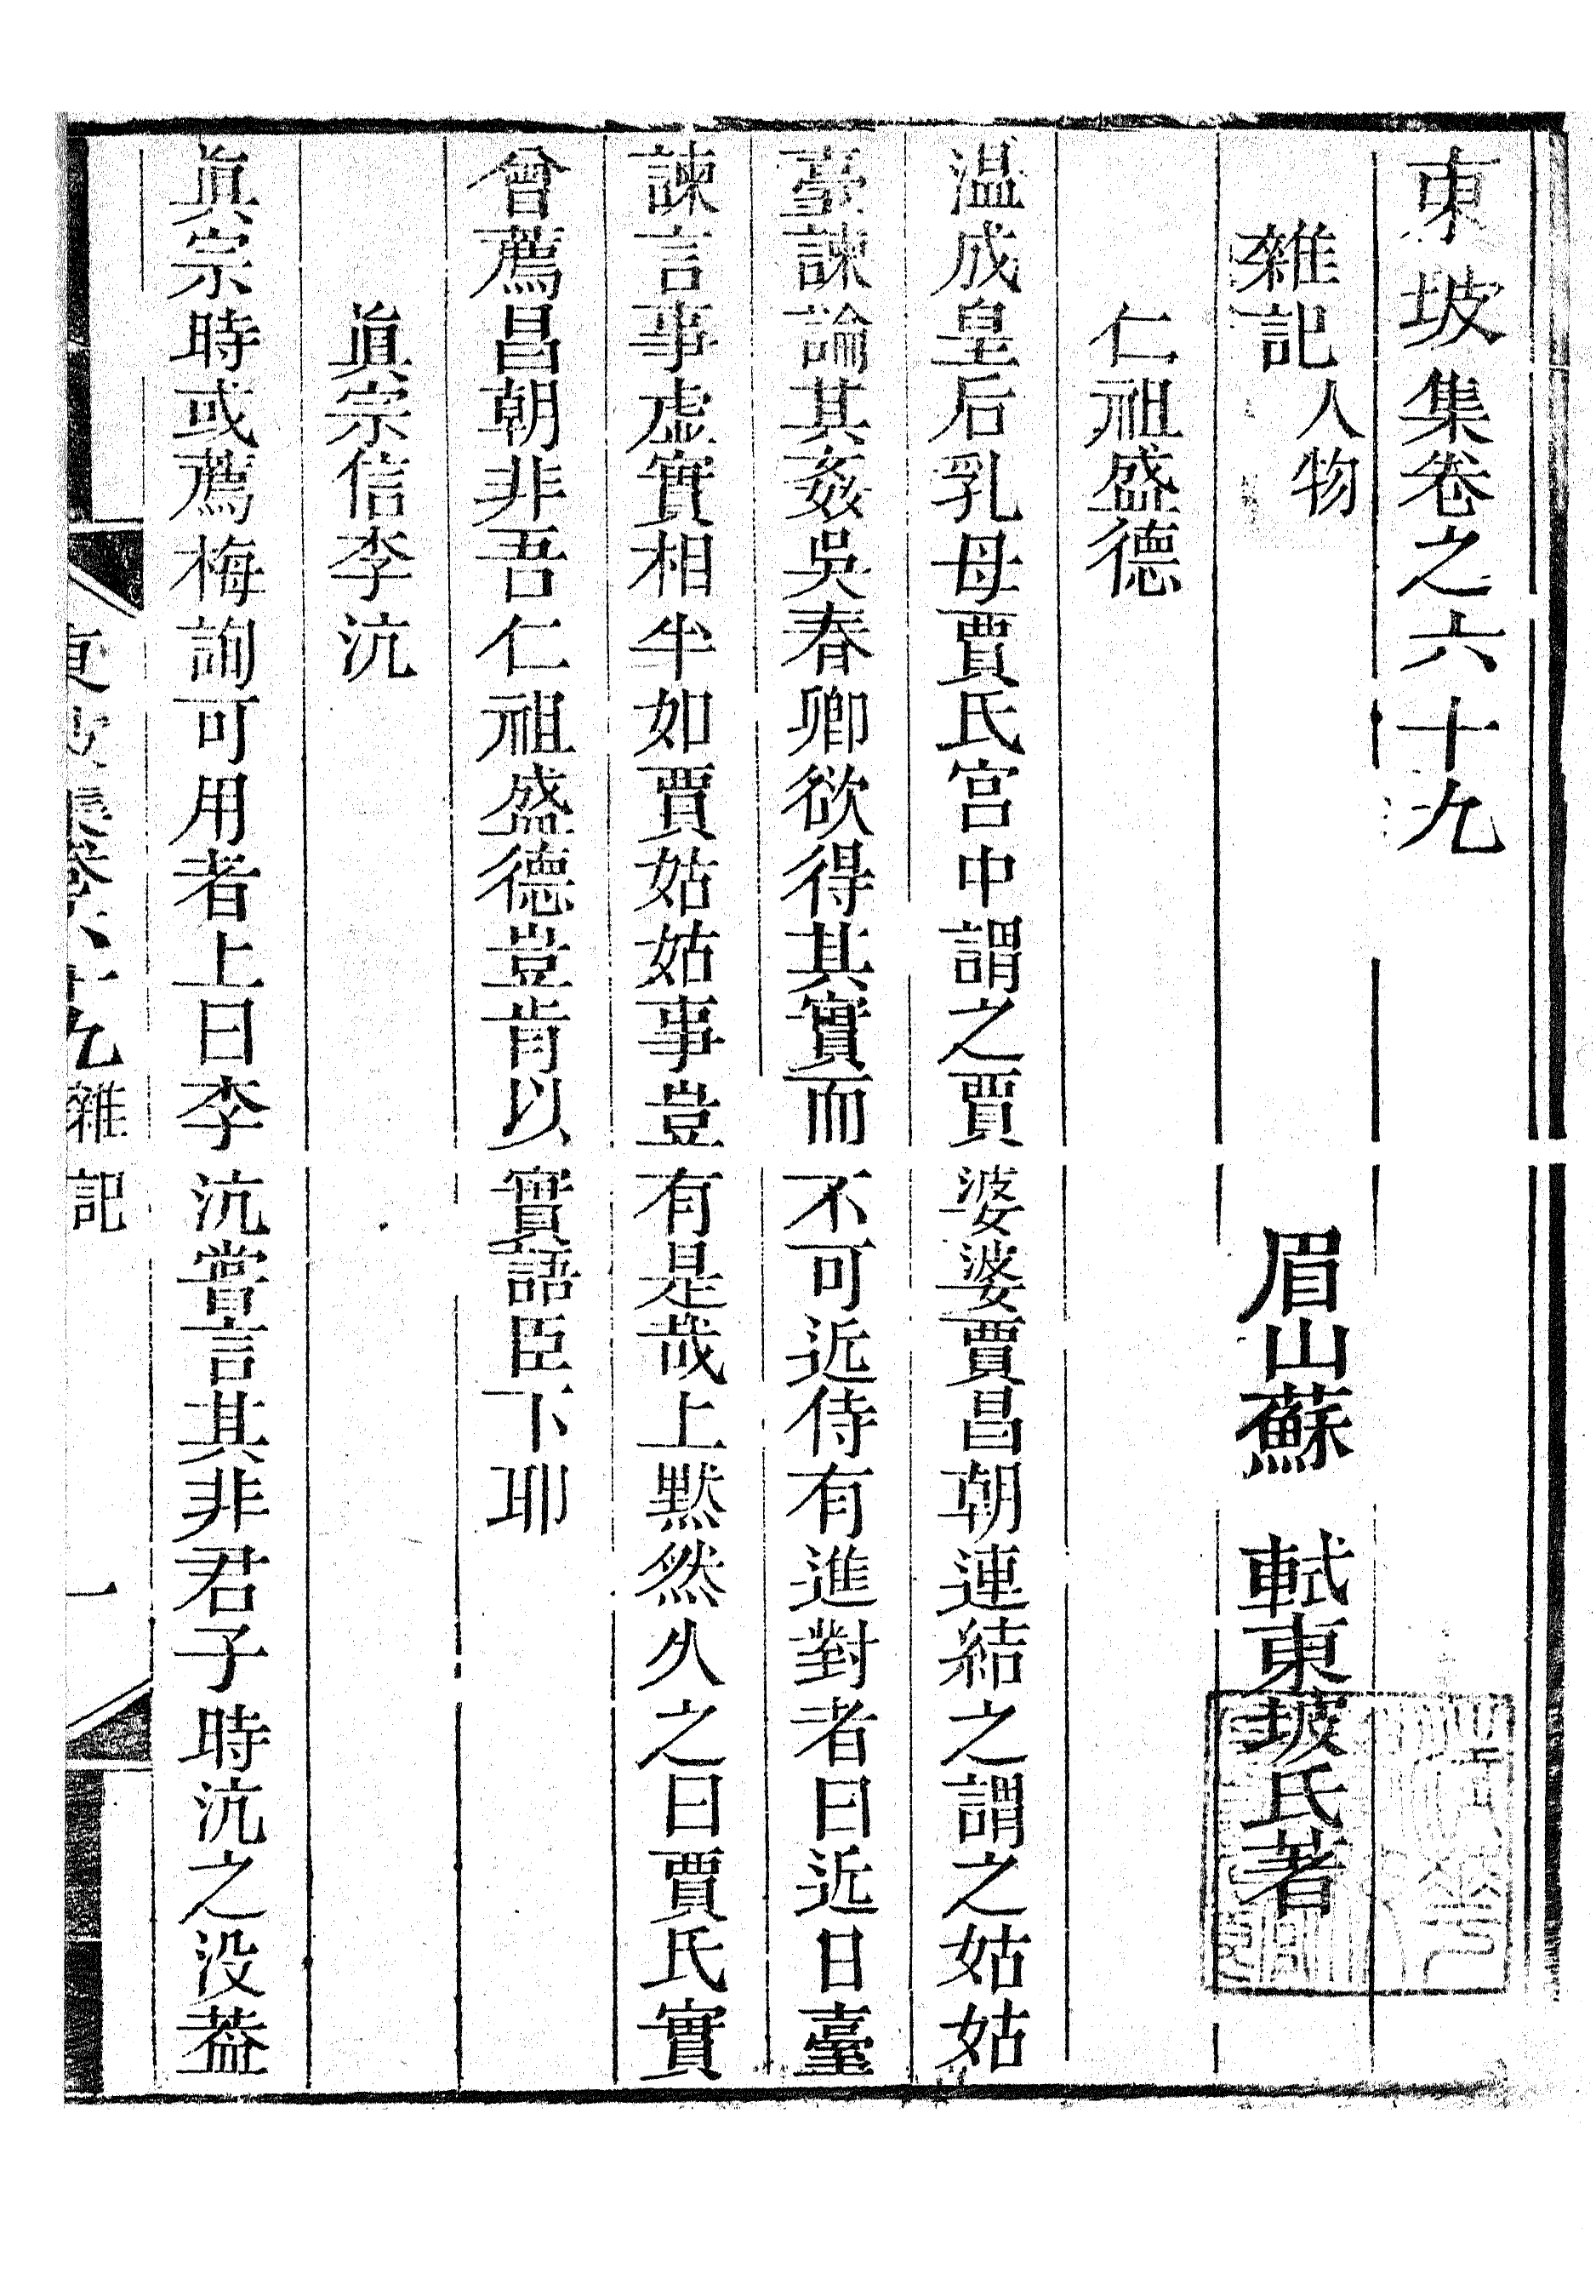 東坡集卷之六十九
雜記人物
眉山蘇 軾東坡氏著
仁祖盛德
溫成皇后乳母賈氏宮中謂之賈婆婆賈昌朝連結之謂之姑姑
臺諫論其姦吳春卿欲得其實而不可近侍有進對者曰近日臺
諫言事虛實相半如賈姑姑事豈有是哉上默然久之曰賈氏實
曾薦昌朝非吾仁祖盛德豈肯以實語臣下耶
眞宗信李沆
眞宗時或薦梅詢可用者上曰李沆嘗言其非君子時沆之沒葢
東坡集卷六十九 雜記 一